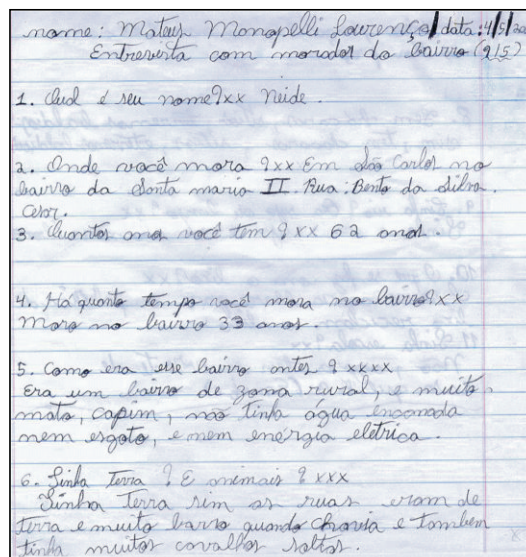 nome: Mateus Monapelli Lourenço data: 4/5/20
Entrevista com morador do bairro (9/5)
1. Qual é seu nome? xx Neide.
2. Onde você mora ? xx Em São Carlos no
bairro da Santa maria II. Rua: Bento da Silva.
Cesr.
3. Quantos anos você tem ? xx 62 anos.
4. Há quanto tempo você mora no bairro? xx
Moro no bairro 33 anos.
5. Como era esse bairro antes ? xxxx
Era um bairro de zona rivral, e muito
mato, capim, não tinha agua encanada
nem esgoto, e nem enérgia eletrica.
6. Tinha terra ? E animais ? xxx
Tinha terra sim as ruas eram de
terra e muito barro quando chovia e tambem
tinha muitos cavalhos soltos.